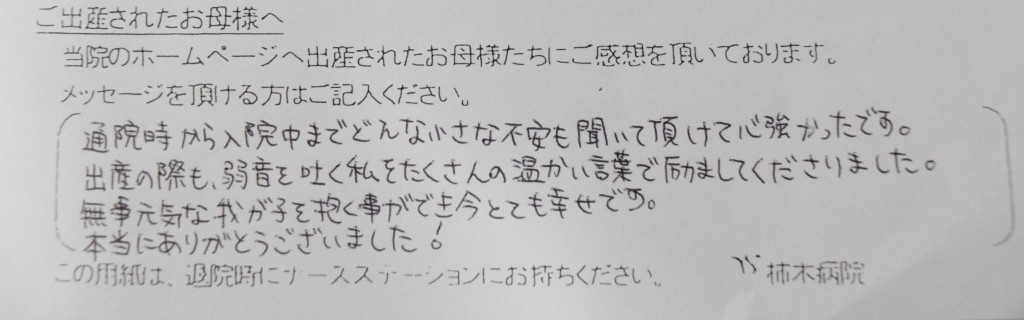 ご出産されたお母様へ
当院のホームページへ出産されたお母様たちにご感想を頂いております。
メッセージを頂ける方はご記入ください。
通院時から入院中までどんな小さな不安も聞いて頂けて心強かったです。
出産の際も、弱音を吐く私をたくさんの温かい言葉で励ましてくださりました。
無事元気な我が子を抱く事ができ今とても幸せです。
本当にありがとうございました!
この用紙は、退院時にナースステーションにお持ちください。 柿木病院